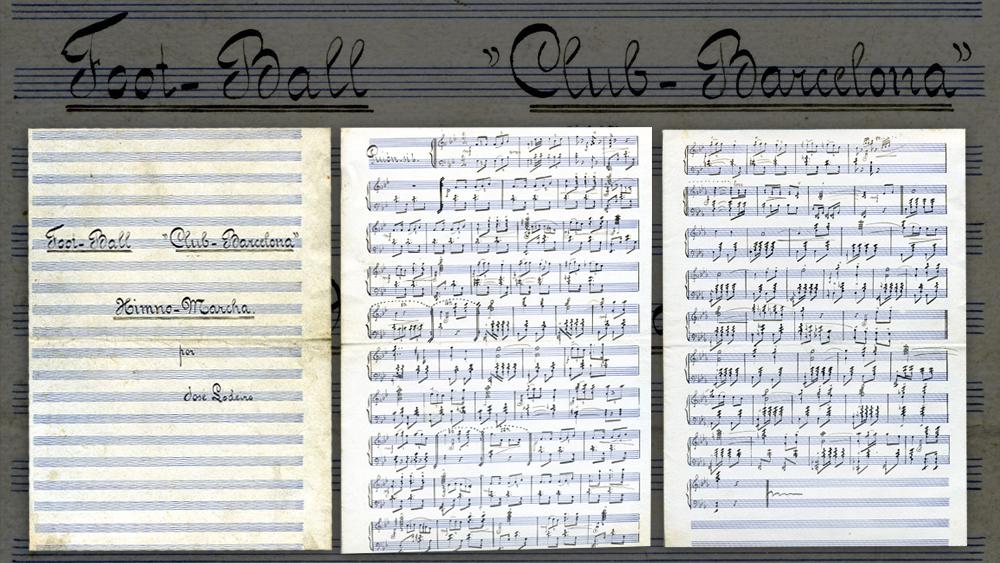 Foot-Ball "Club-Barcelona"
Foot-Ball "Club-Barcelona"
Himno-Marcha
por
José Lodeiro